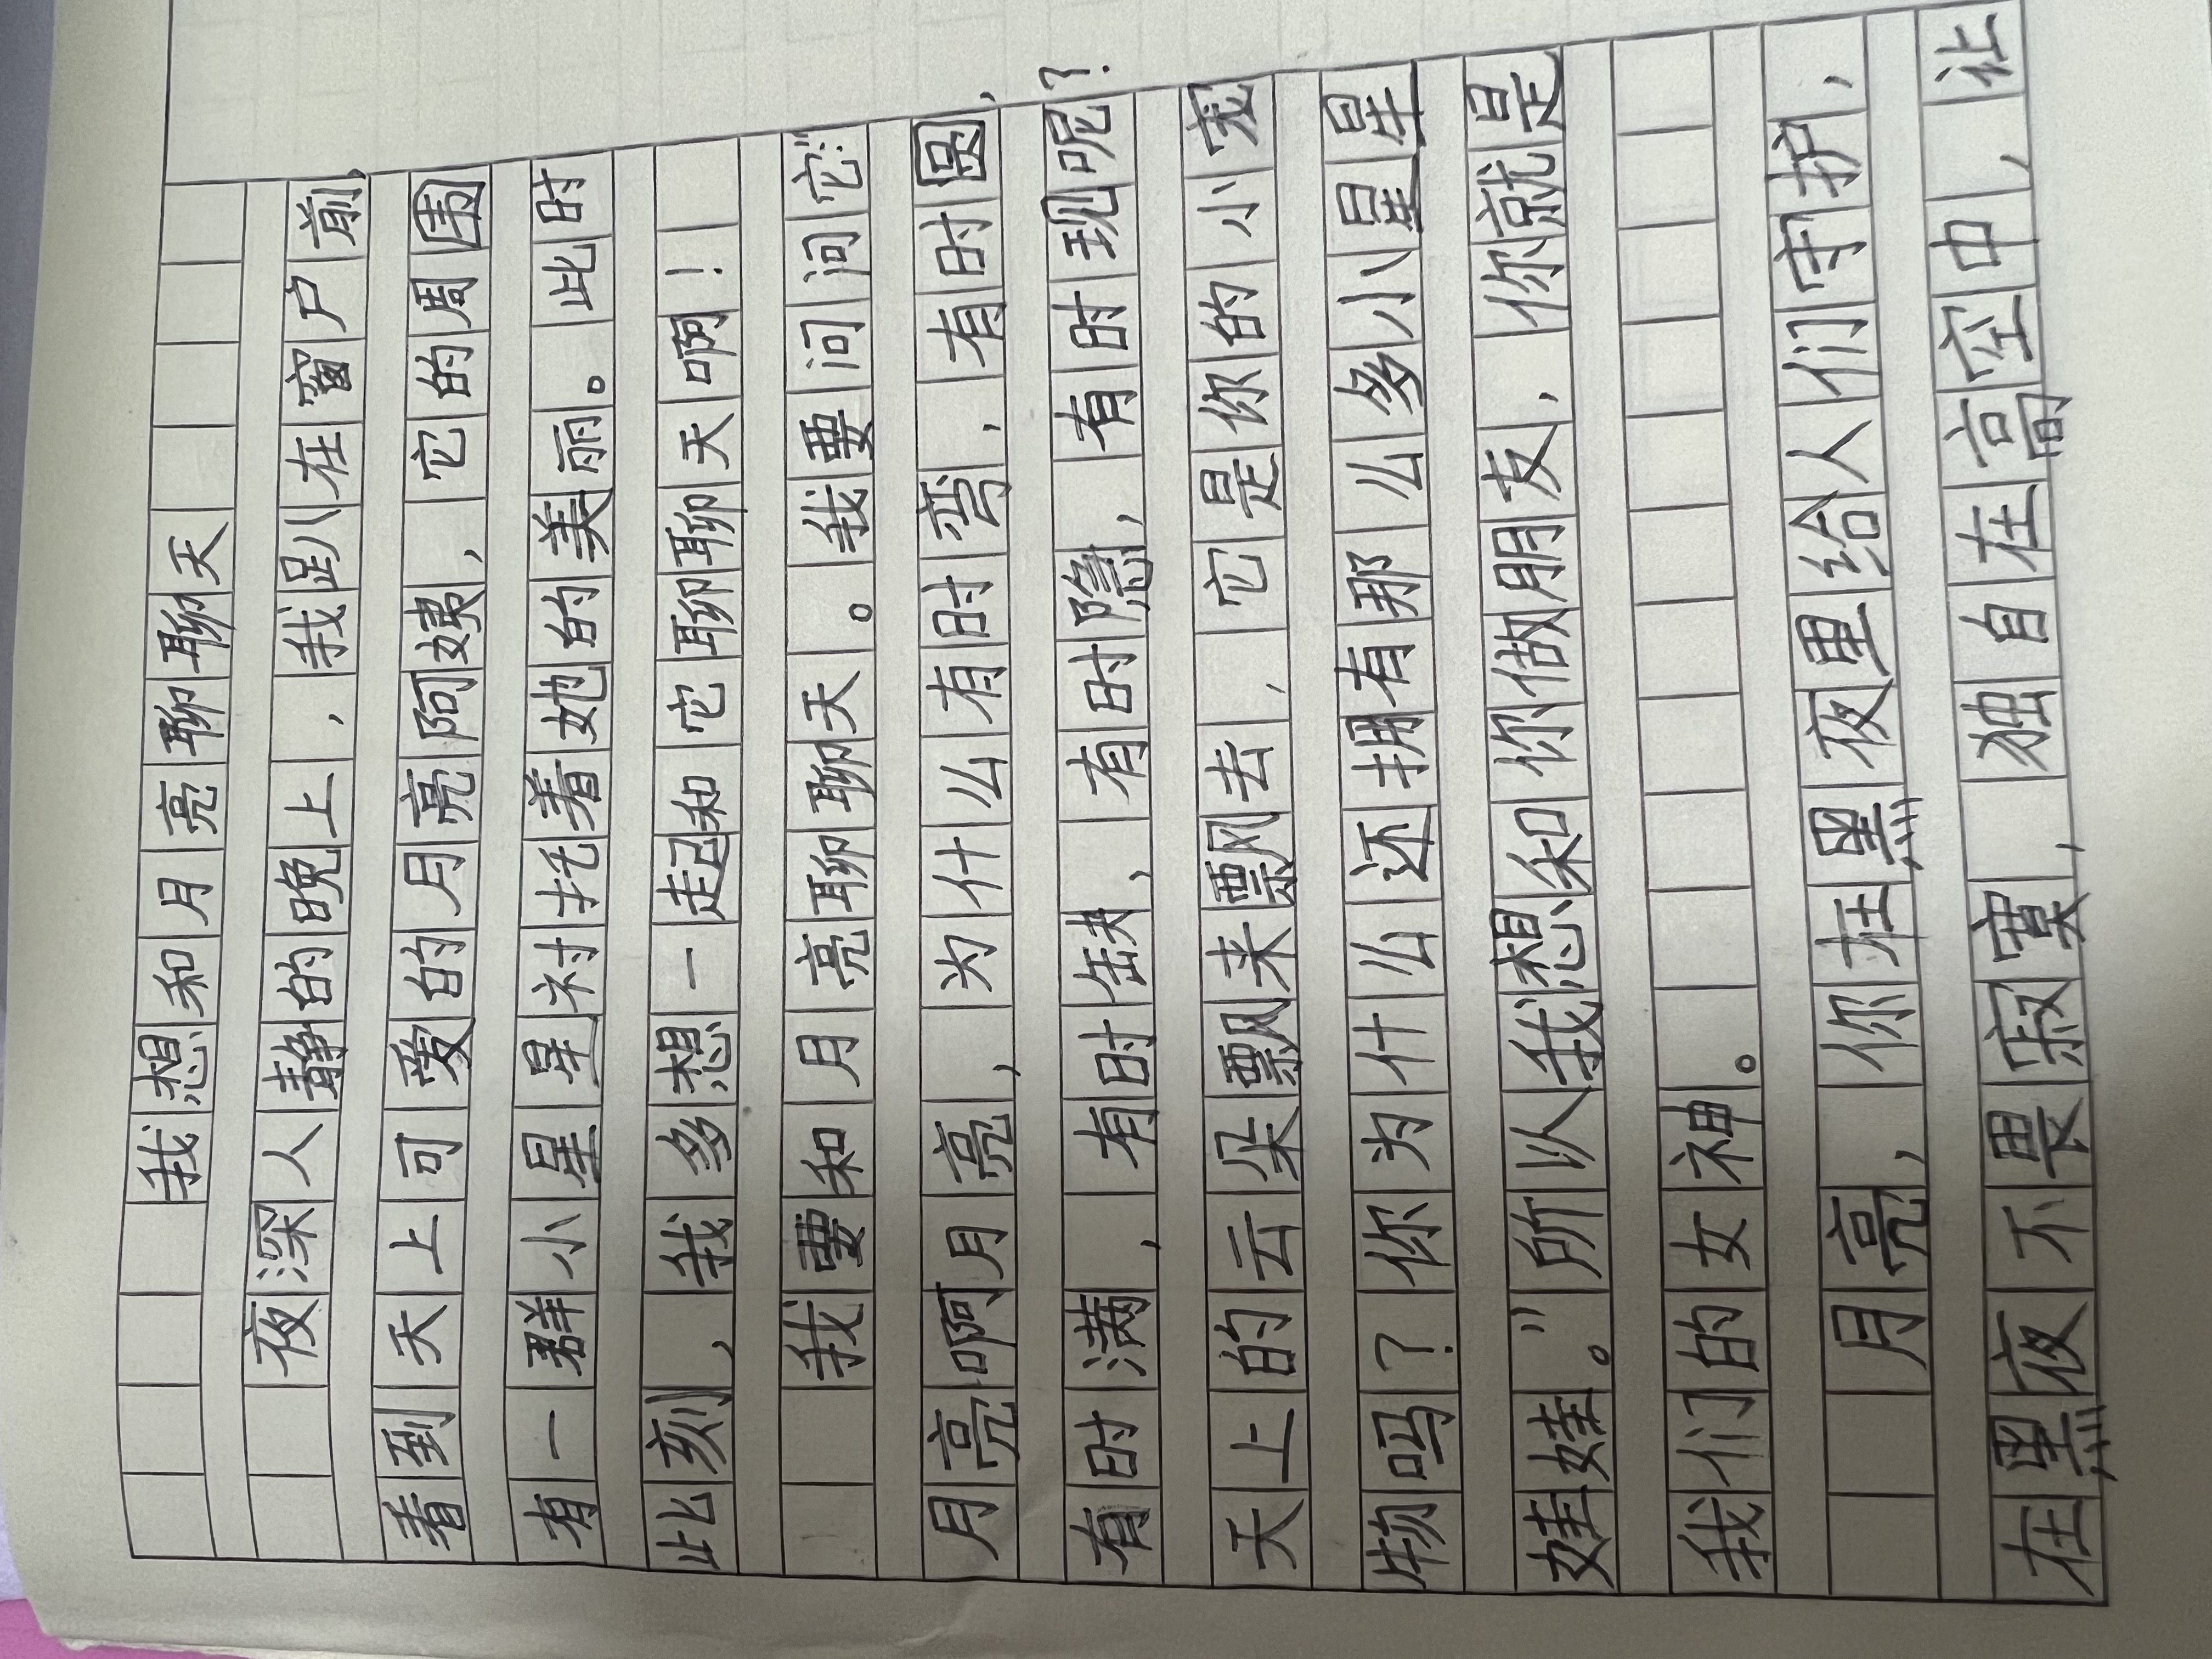 我想和月亮聊聊天
夜深人静的晚上，我趴在窗户前，
看到天上可爱的月亮阿姨，它的周围
有一群小星星衬托着她的美丽。此时
此刻，我多想一起和它聊聊天啊！
我要和月亮聊聊天。我要问问它：“
月亮啊月亮，为什么有时弯，有时圆，
有时满，有时缺，有时隐，有时现呢？
天上的云朵飘来飘去，它是你的小宠
物吗？你为什么还拥有那么多小星星
娃娃。”所以我想和你做朋友，你就是
我们的女神。
月亮，你在黑夜里给人们守护，
在黑夜不畏寂寞，独自在高空中，让